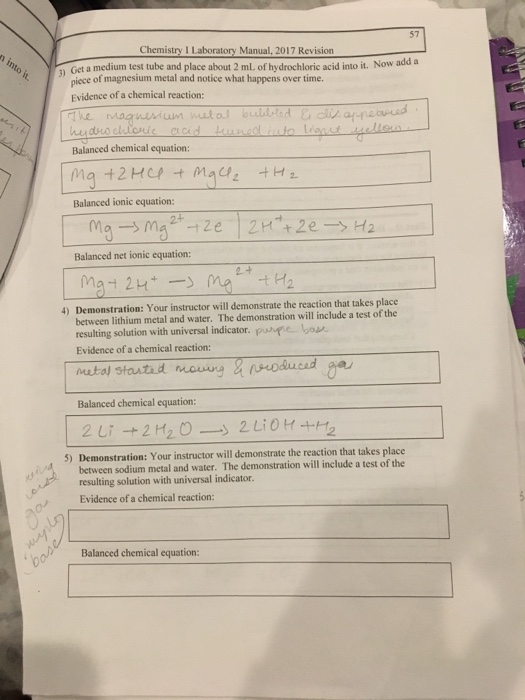 57
Chemistry I Laboratory Manual, 2017 Revision
into it.
3) Get a medium test tube and place about 2 mL of hydrochloric acid into it. Now add a
piece of magnesium metal and notice what happens over time.
Evidence of a chemical reaction:
The magnesium metal bubbled & disappeared.
hydrochloric acid turned into light yellow.
Balanced chemical equation:
Mg + 2HCl + MgCl₂ + H₂
Balanced ionic equation:
Mg → Mg²⁺ + 2e | 2H⁺ + 2e → H₂
Balanced net ionic equation:
Mg + 2H⁺ → Mg²⁺ + H₂
4) Demonstration: Your instructor will demonstrate the reaction that takes place
between lithium metal and water. The demonstration will include a test of the
resulting solution with universal indicator. purple base
Evidence of a chemical reaction:
metal started moving & produced gas
Balanced chemical equation:
2 Li + 2H₂O → 2 LiOH + H₂
5) Demonstration: Your instructor will demonstrate the reaction that takes place
between sodium metal and water. The demonstration will include a test of the
resulting solution with universal indicator.
gas
base
Evidence of a chemical reaction:
Balanced chemical equation: